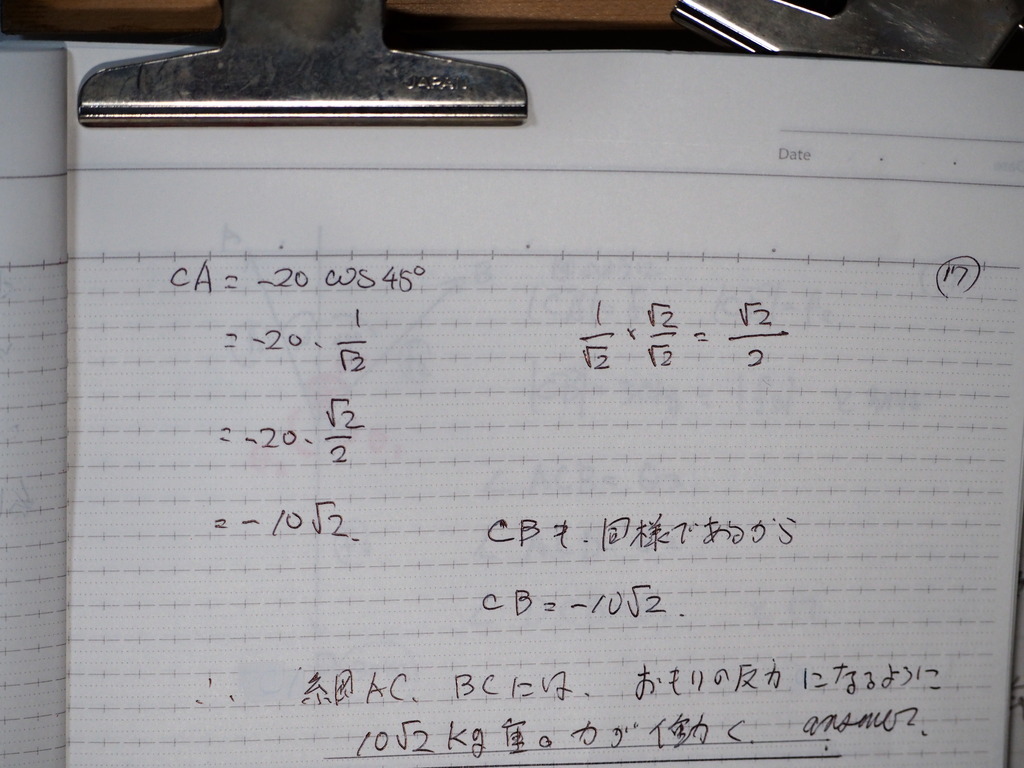 JAPAN
Date
17
CA = -20 cos 45°
= -20 · 1/√2
1/√2 × √2/√2 = √2/2
= -20 · √2/2
= -10√2.
CBも、同様であるから
CB = -10√2.
∴ 糸 AC、BCには、おもりの反力になるように
10√2 kg重の力が働く answer?